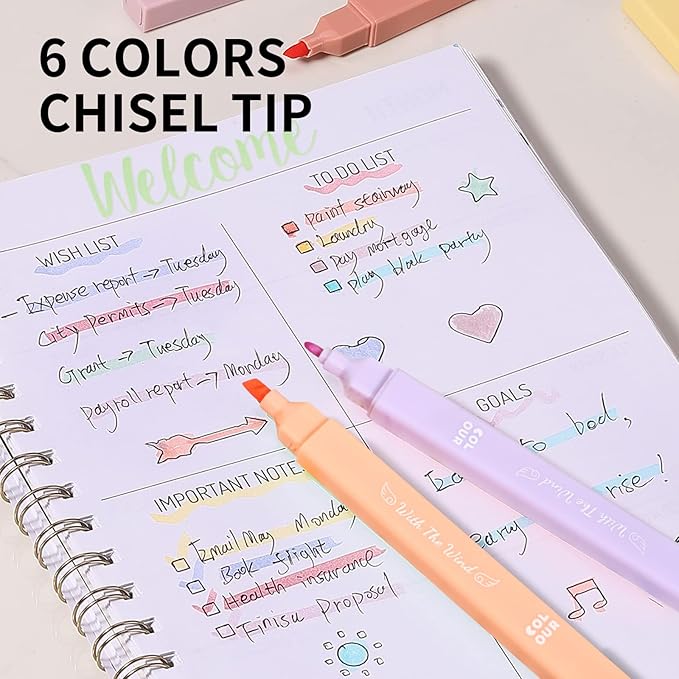 6 COLORS
CHISEL TIP
Welcome
WISH LIST
Expense report → Tuesday
City Permits → Tuesday
Grant → Tuesday
Payroll report → Monday
TO DO LIST
Paint stairway
Laundry
Pay mortgage
Play block party
IMPORTANT NOTE
Email May Monday
Book flight
Health insurance
Finisu Proposal
GOALS
to bed,
rise!
COL
OUR
With The Wind
COL
OUR
With The Wind